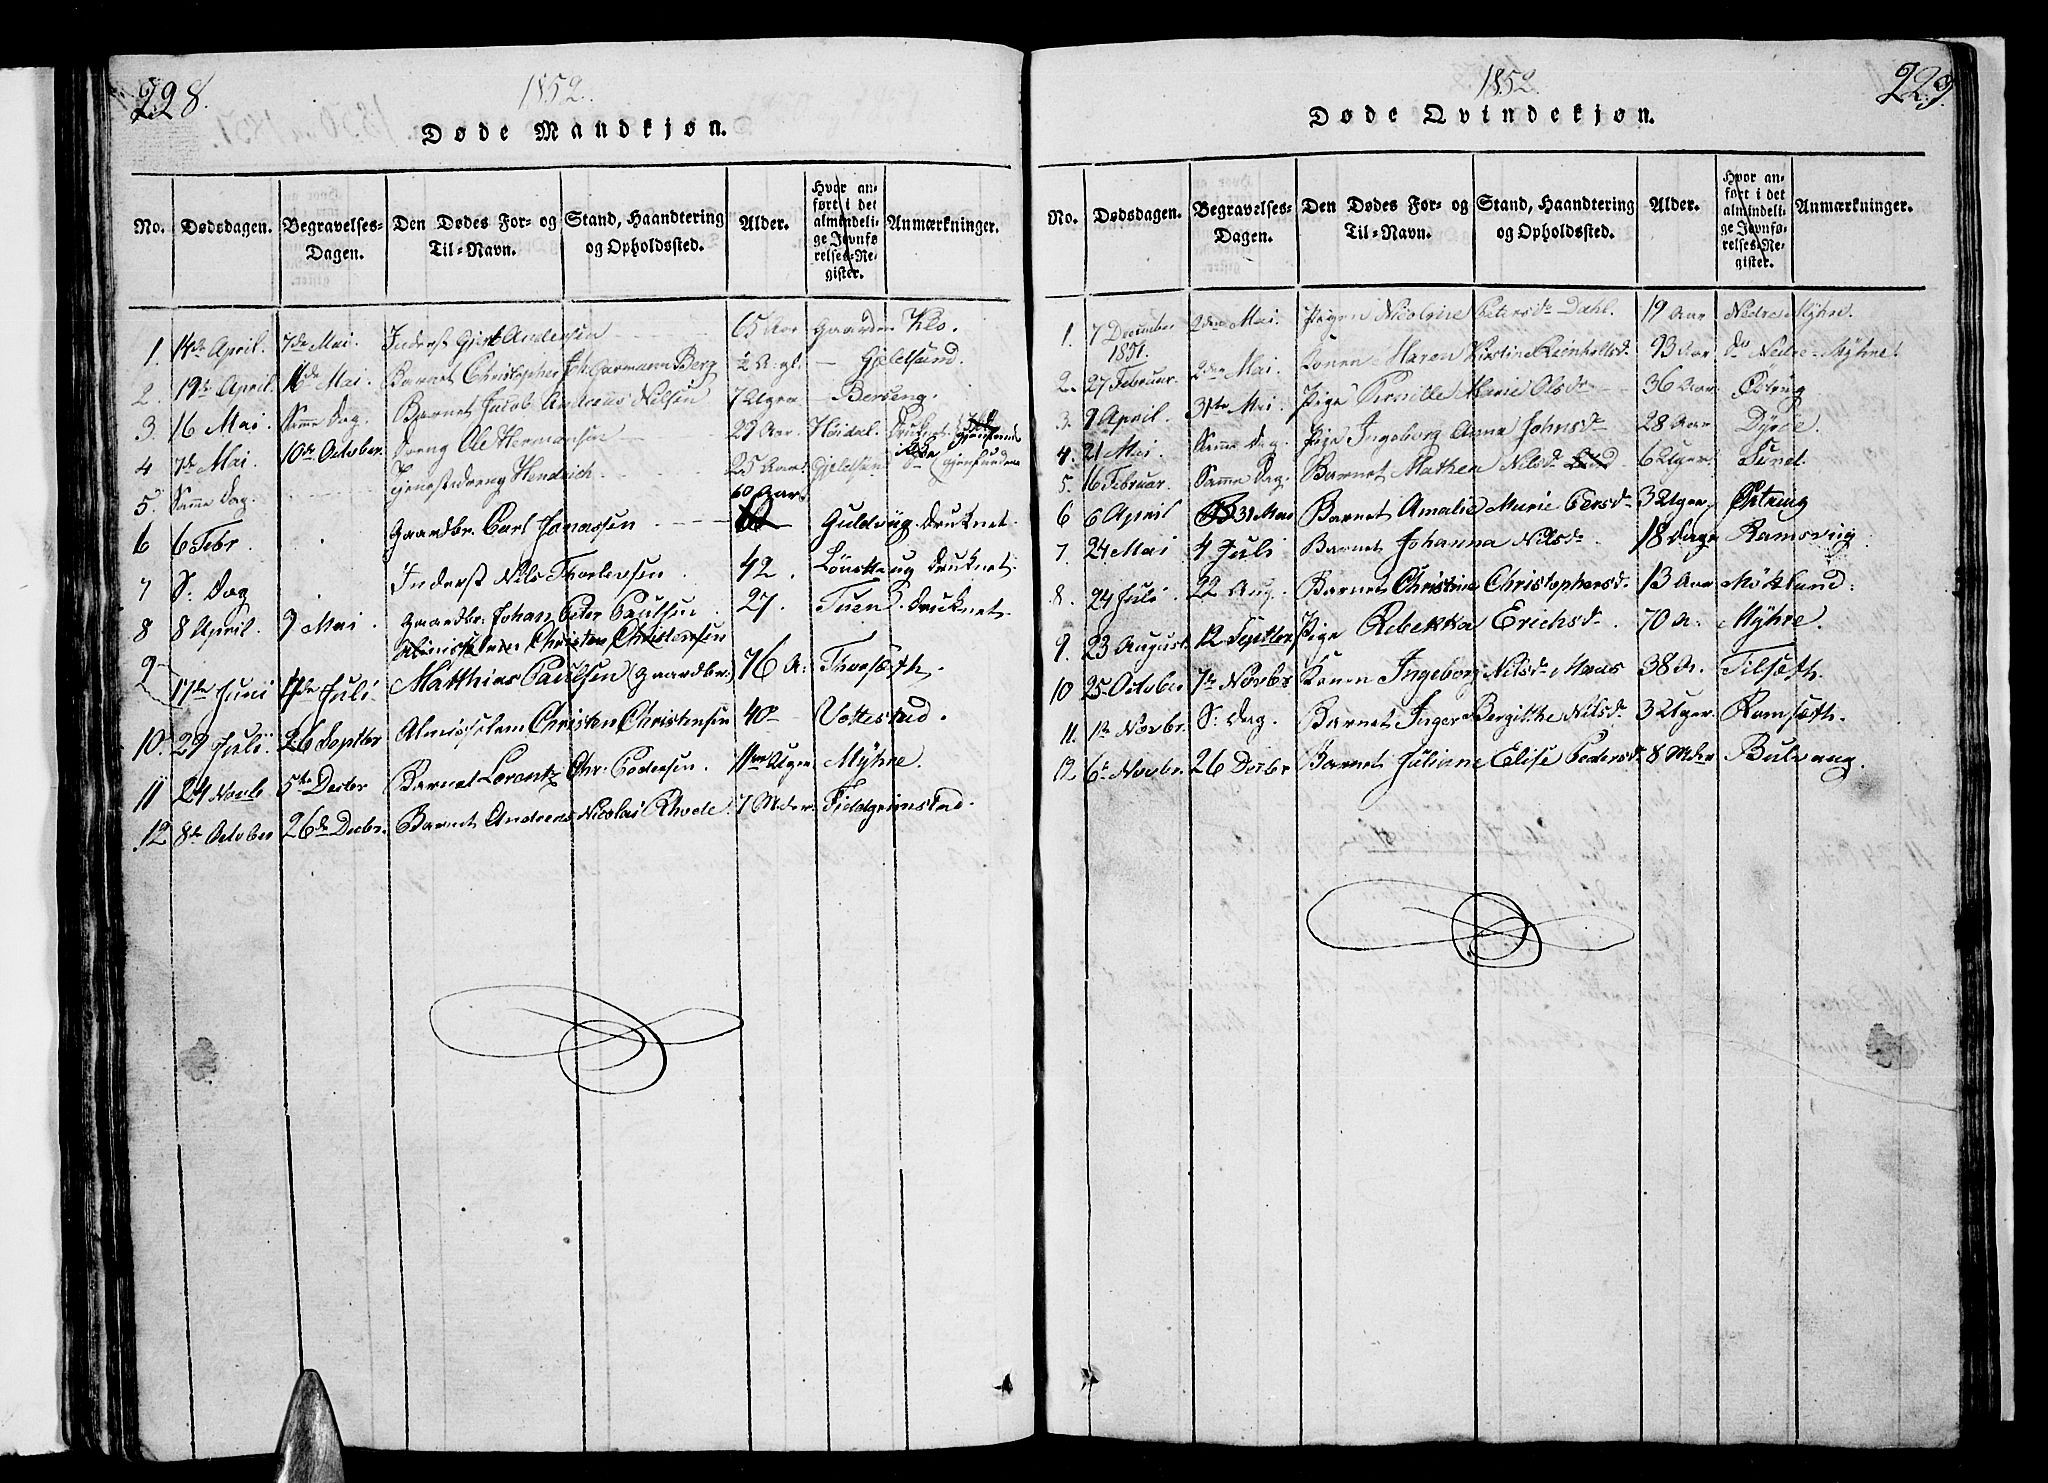 228.
1852.
Døde Mandkjøn.
No. Dødsdagen. Begravelses-Dagen. Den Dødes For- og Til-Navn. Stand, Haandtering og Opholdssted. Alder. Hvor anført i det almindelige Jevnførelses-Register. Anmærkninger.
1. 14de April. 7de Mai. Inderst Gjert Andersen 65 Aar Gaarden Klo.
2. 19de April Mai. Barnet Christopher Joh. Hermann Berg ½ A: gl. Gjelelsund.
3. 16 Mai. Samme Dag. Barnet Jacob Andreas Nilsen 7 Uger Berseng.
4 7de Mai. 10de October. Dreng Ole Hermansen 29 Aar. Høidal. Druknet
5. Samme Dag. Tjenestedreng Hendrich. 25 Aar
6 6 Febr . Gaardbr. Carl Jonassen 60 Aar Guldvig. Druknet.
7 S: Dag . Inderst Nils Thorlevsen . 42. Druknet.
8 8 April. 9 Mai. Gaardbr: Johan Peter Paulsen. 27. Tuen. Druknet.
Christen Christensen
9 17de Juni 4de Juli. Matthias Paulsen (Gaardbr.) 76 A:
10. 29 Juli. 26 Septbr Almisselem Christen Christensen 40 Vottestad.
11 24 Novb 5te Decbr Barnet Lorentz Chr. Pedersen. 11 Uger Mÿhre.
12. 8de October 26de Decbr. Barnet Andreas Nicolai Rhode. 7 Mdr. Fiddgrimstad.
229.
1852.
Døde Qvindekjøn.
No. Dødsdagen. Begravelses-Dagen. Den Dødes For- og Til-Navn. Stand, Haandtering og Opholdssted. Alder. Hvor anført i det almindelige Jevnførelses-Register. Anmærkninger.
1. 7 December 1851. 2den Mai. Pigen Nicoline Petersdr Dahl. 19 Aar Nedre Mÿhre.
2. 27 Februar. 2den Mai. Konen Maren Kirstine Reinholtsdr 93 Aar do Nedre-Mÿhre.
3. 9 April. 31te Mai. Pige Pernille Marie Olsdr 36 Aar
4. 21 Mai. Samme Dag. Pige Ingeborg Anna Johnsdr 28 Aar Dyrøe.
5. 16 Februar. Samme Dag. Barnet Mathea Nilsdr 6 Uger.
6 6 April 31 Mai Barnet Amalie Marie Persdr 3 Uger
7. 24 Mai 4 Juli Barnet Johanna Nilsdr . 18 Dage Ramsvig.
8. 24 Juli 22 Aug. Barnet Christine Christophersdr. 13 Aar Møkland.
9. 23 August 12 Septbr Pige Rebekka Erichsdr. 70 A: Mÿhre.
10 25 October 7de Novbr Konen Ingeborg Nilsdr Maas 38 A. Tilseth.
11. 1te Novbr. S: Dag. Barnet Inger Bergitthe Nilsdr. 3 Uger. Ramseth.
12 6te Novbr. 26 Decbr Barnet Juliane Elise Pedersdr 8 Mdr Bulvaag.